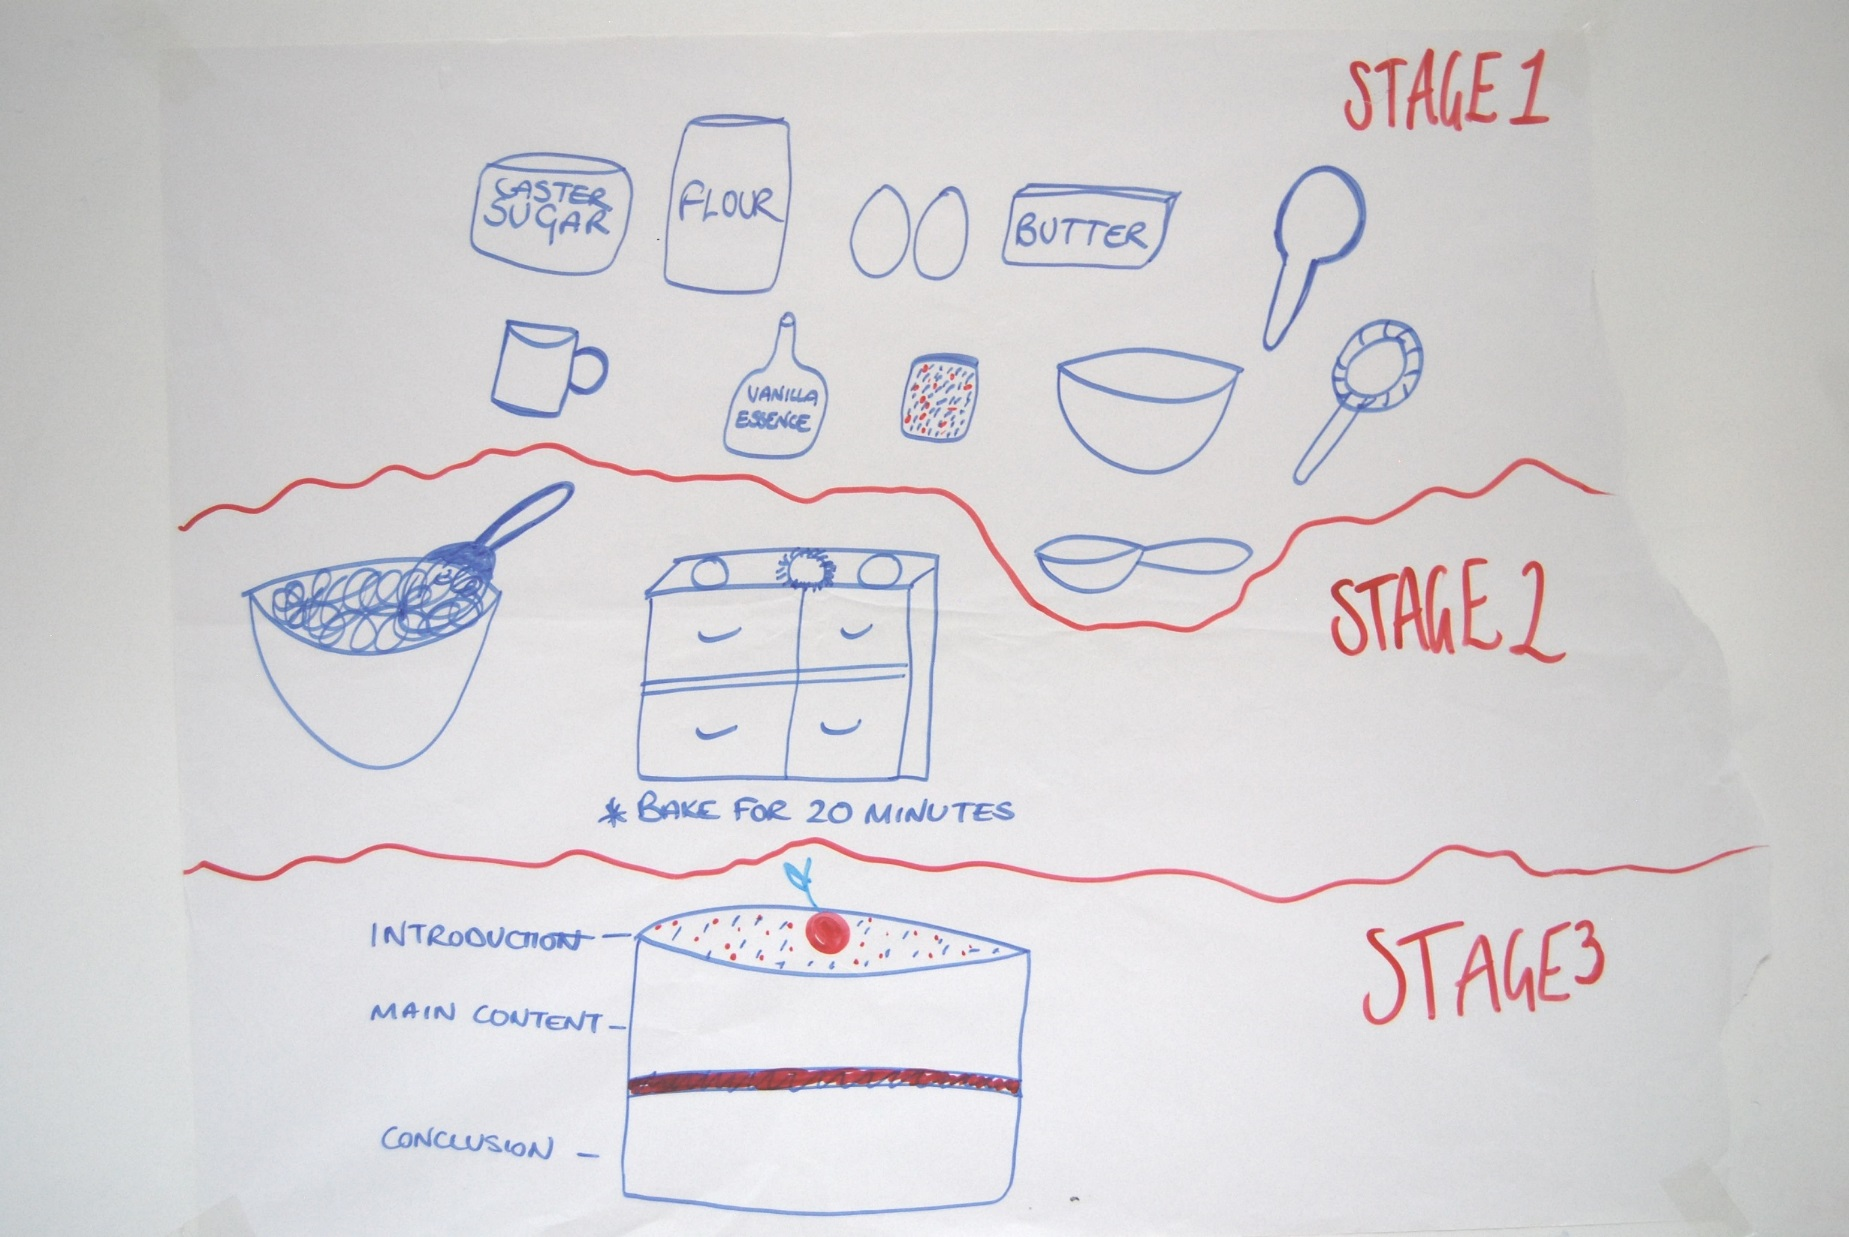 STAGE 1
CASTER
SUGAR
FLOUR
BUTTER
VANILLA
ESSENCE
STAGE 2
* BAKE FOR 20 MINUTES
STAGE 3
INTRODUCTION
MAIN CONTENT
CONCLUSION